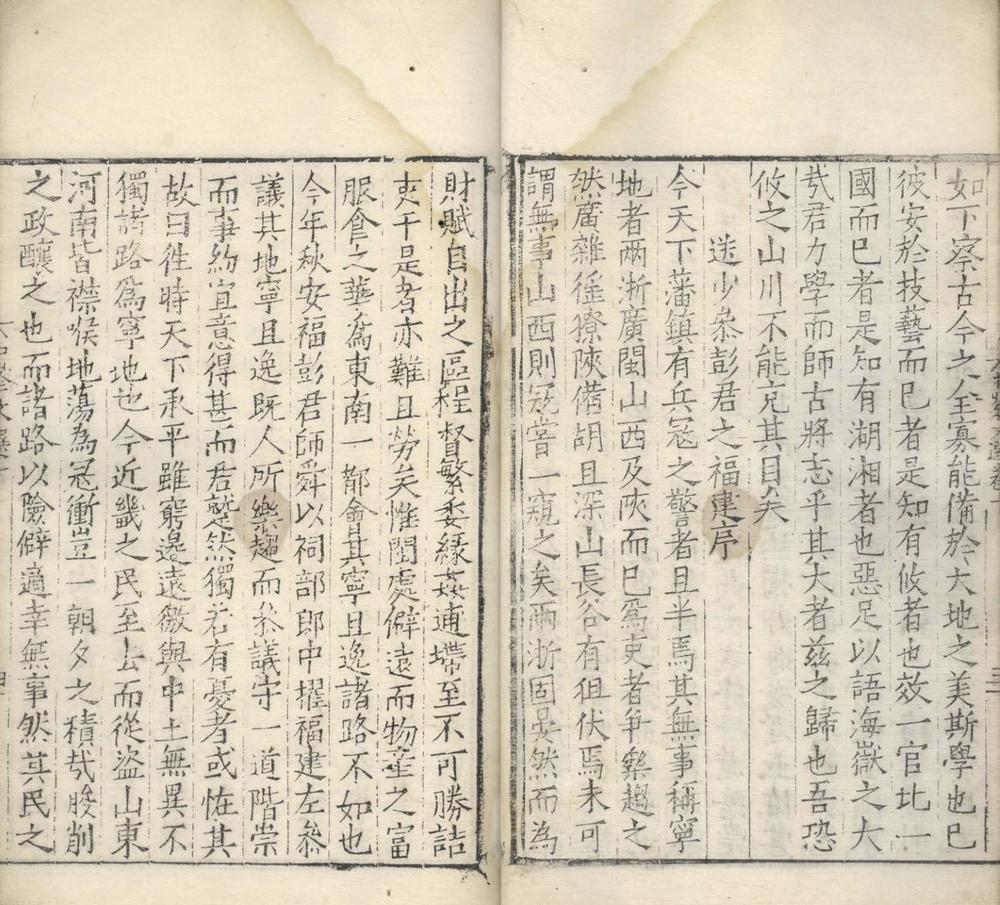 如下察古今之全寡能備於大地之美斯學也巳
彼安於技藝而巳者是知有攸者也效一官比一
國而巳者是知有湖湘者也惡足以語海嶽之大
㢤君力學而師古將志乎其大者兹之歸也吾恐
攸之山川不能充其目矣
送少叅彭君之福建序
今天下藩鎮有兵冦之警者且半焉其無事稱寧
地者兩浙廣閩山西及陜而巳爲吏者争樂趨之
然廣雜徭獠陜備胡且深山長谷有徂伏焉未可
謂無事山西則冦嘗一窺之矣兩浙固晏然而為
財賦自出之區程督繁委緣姦逋𭏟至不可勝詰
吏干是者亦難且勞矣惟閩處僻遠而物產之富
服食之華爲東南一都會其寧且逸諸路不如也
今年秋安福彭君師舜以祠部郎中擢福建左叅
議其地寧且逸既人所樂趨而叅議守一道階崇
而事約宜意得甚而君蹙然獨若有憂者或恠其
故曰徃時天下承平雖窮邊遠徼與中土無異不
獨諸路爲寧地也今近畿之民至去而從盗山東
河南皆襟喉地蕩為冦衝豈一朝夕之積㢤朘削
之政釀之也而諸路以險僻適幸無事然其民之